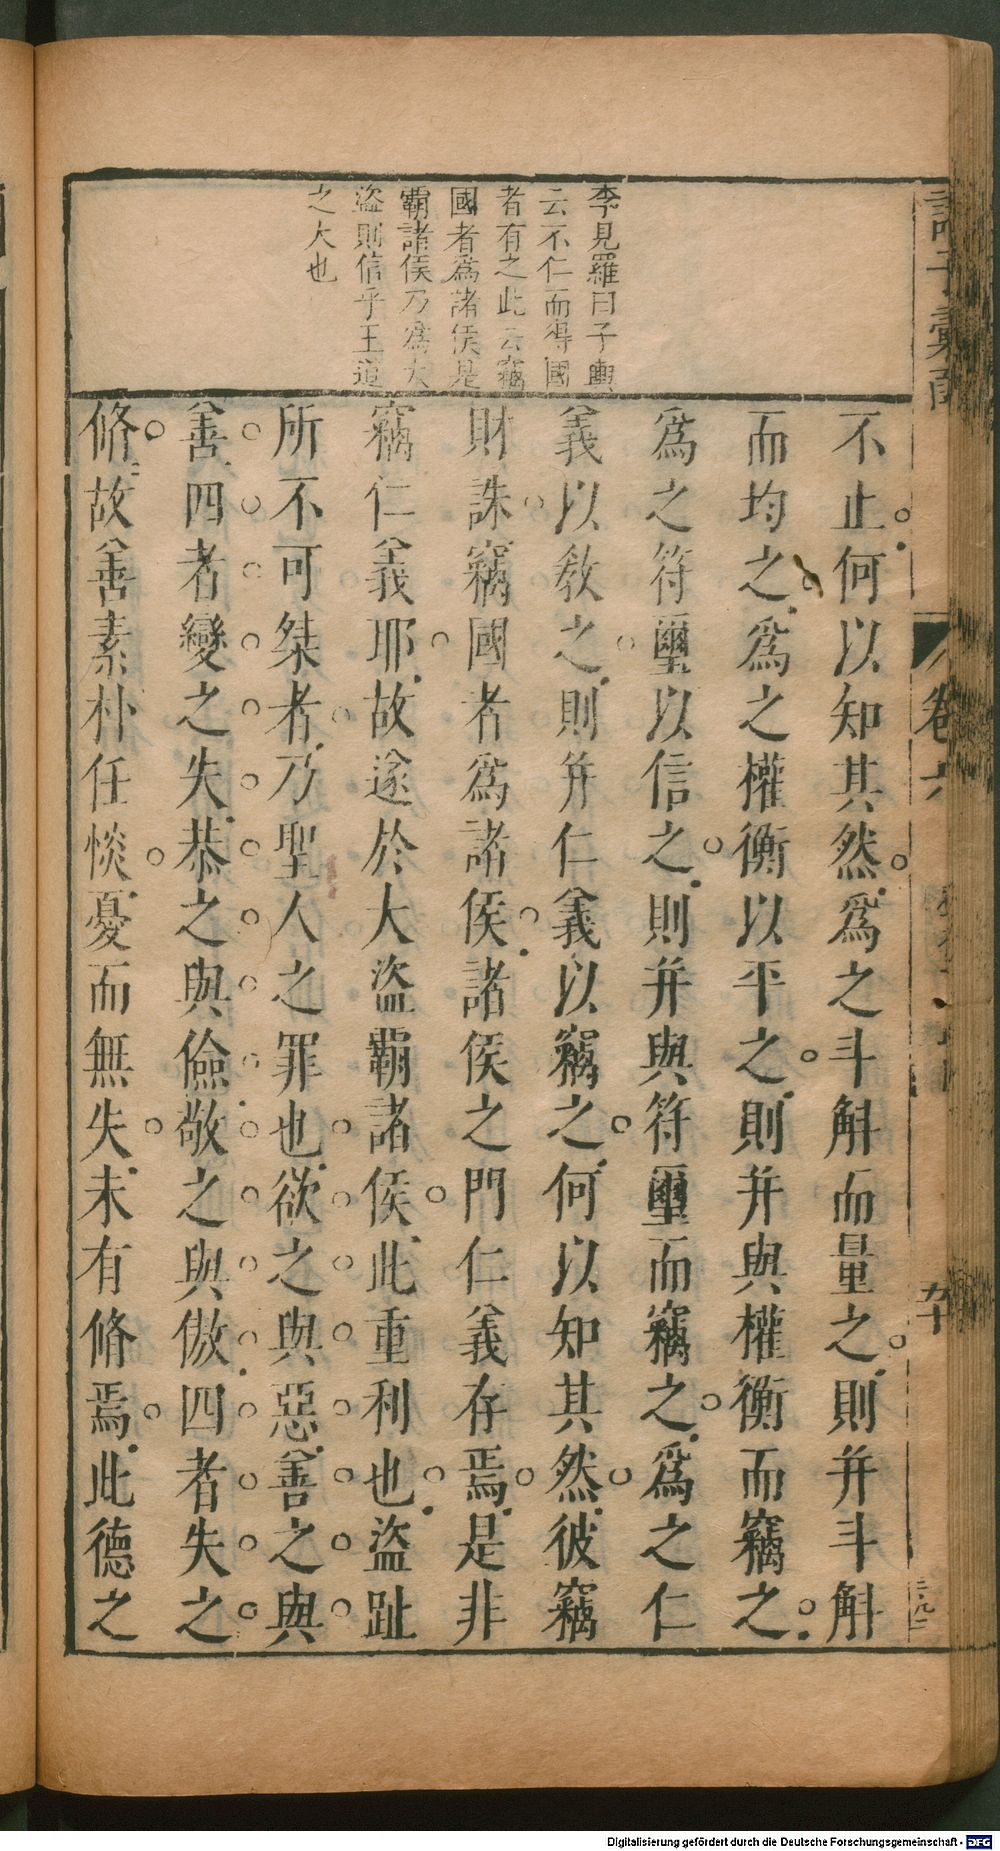 李見羅曰子輿
云不仁而得國
者有之此云竊
國者為諸侯是
霸諸侯乃為大
盜則信乎王道
之大也
不止何以知其然為之斗斛而量之則并斗斛
而均之為之權衡以平之則并與權衡而竊之
為之符璽以信之則并與符璽而竊之為之仁
義以教之則并仁義以竊之何以知其然彼竊
財誅竊國者為諸侯諸侯之門仁義存焉是非
竊仁義耶故遂於大盜霸諸侯此重利也盜趾
所不可桀者乃聖人之罪也欲之與惡善之與
善四者變之失恭之與儉敬之與傲四者失之
脩故善素朴任惔憂而無失未有脩焉此德之
卷六
Digitalisierung gefördert durch die Deutsche Forschungsgemeinschaft - DFG